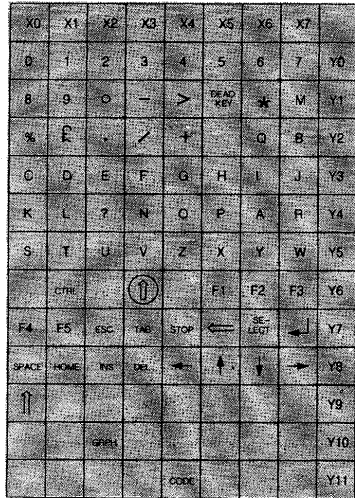 X0 X1 X2 X3 X4 X5 X6 X7
0 1 2 3 4 5 6 7 Y0
8 9 ○ − > DEAD KEY * M Y1
% £ . / + Q B Y2
C D E F G H I J Y3
K L ? N O P A R Y4
S T U V Z X Y W Y5
CTRL ⇧ F1 F2 F3 Y6
F4 F5 ESC TAB STOP ⇐ SE LECT ↵ Y7
SPACE HOME INS DEL ← ↑ ↓ → Y8
⇑ Y9
GRPH Y10
CODE Y11